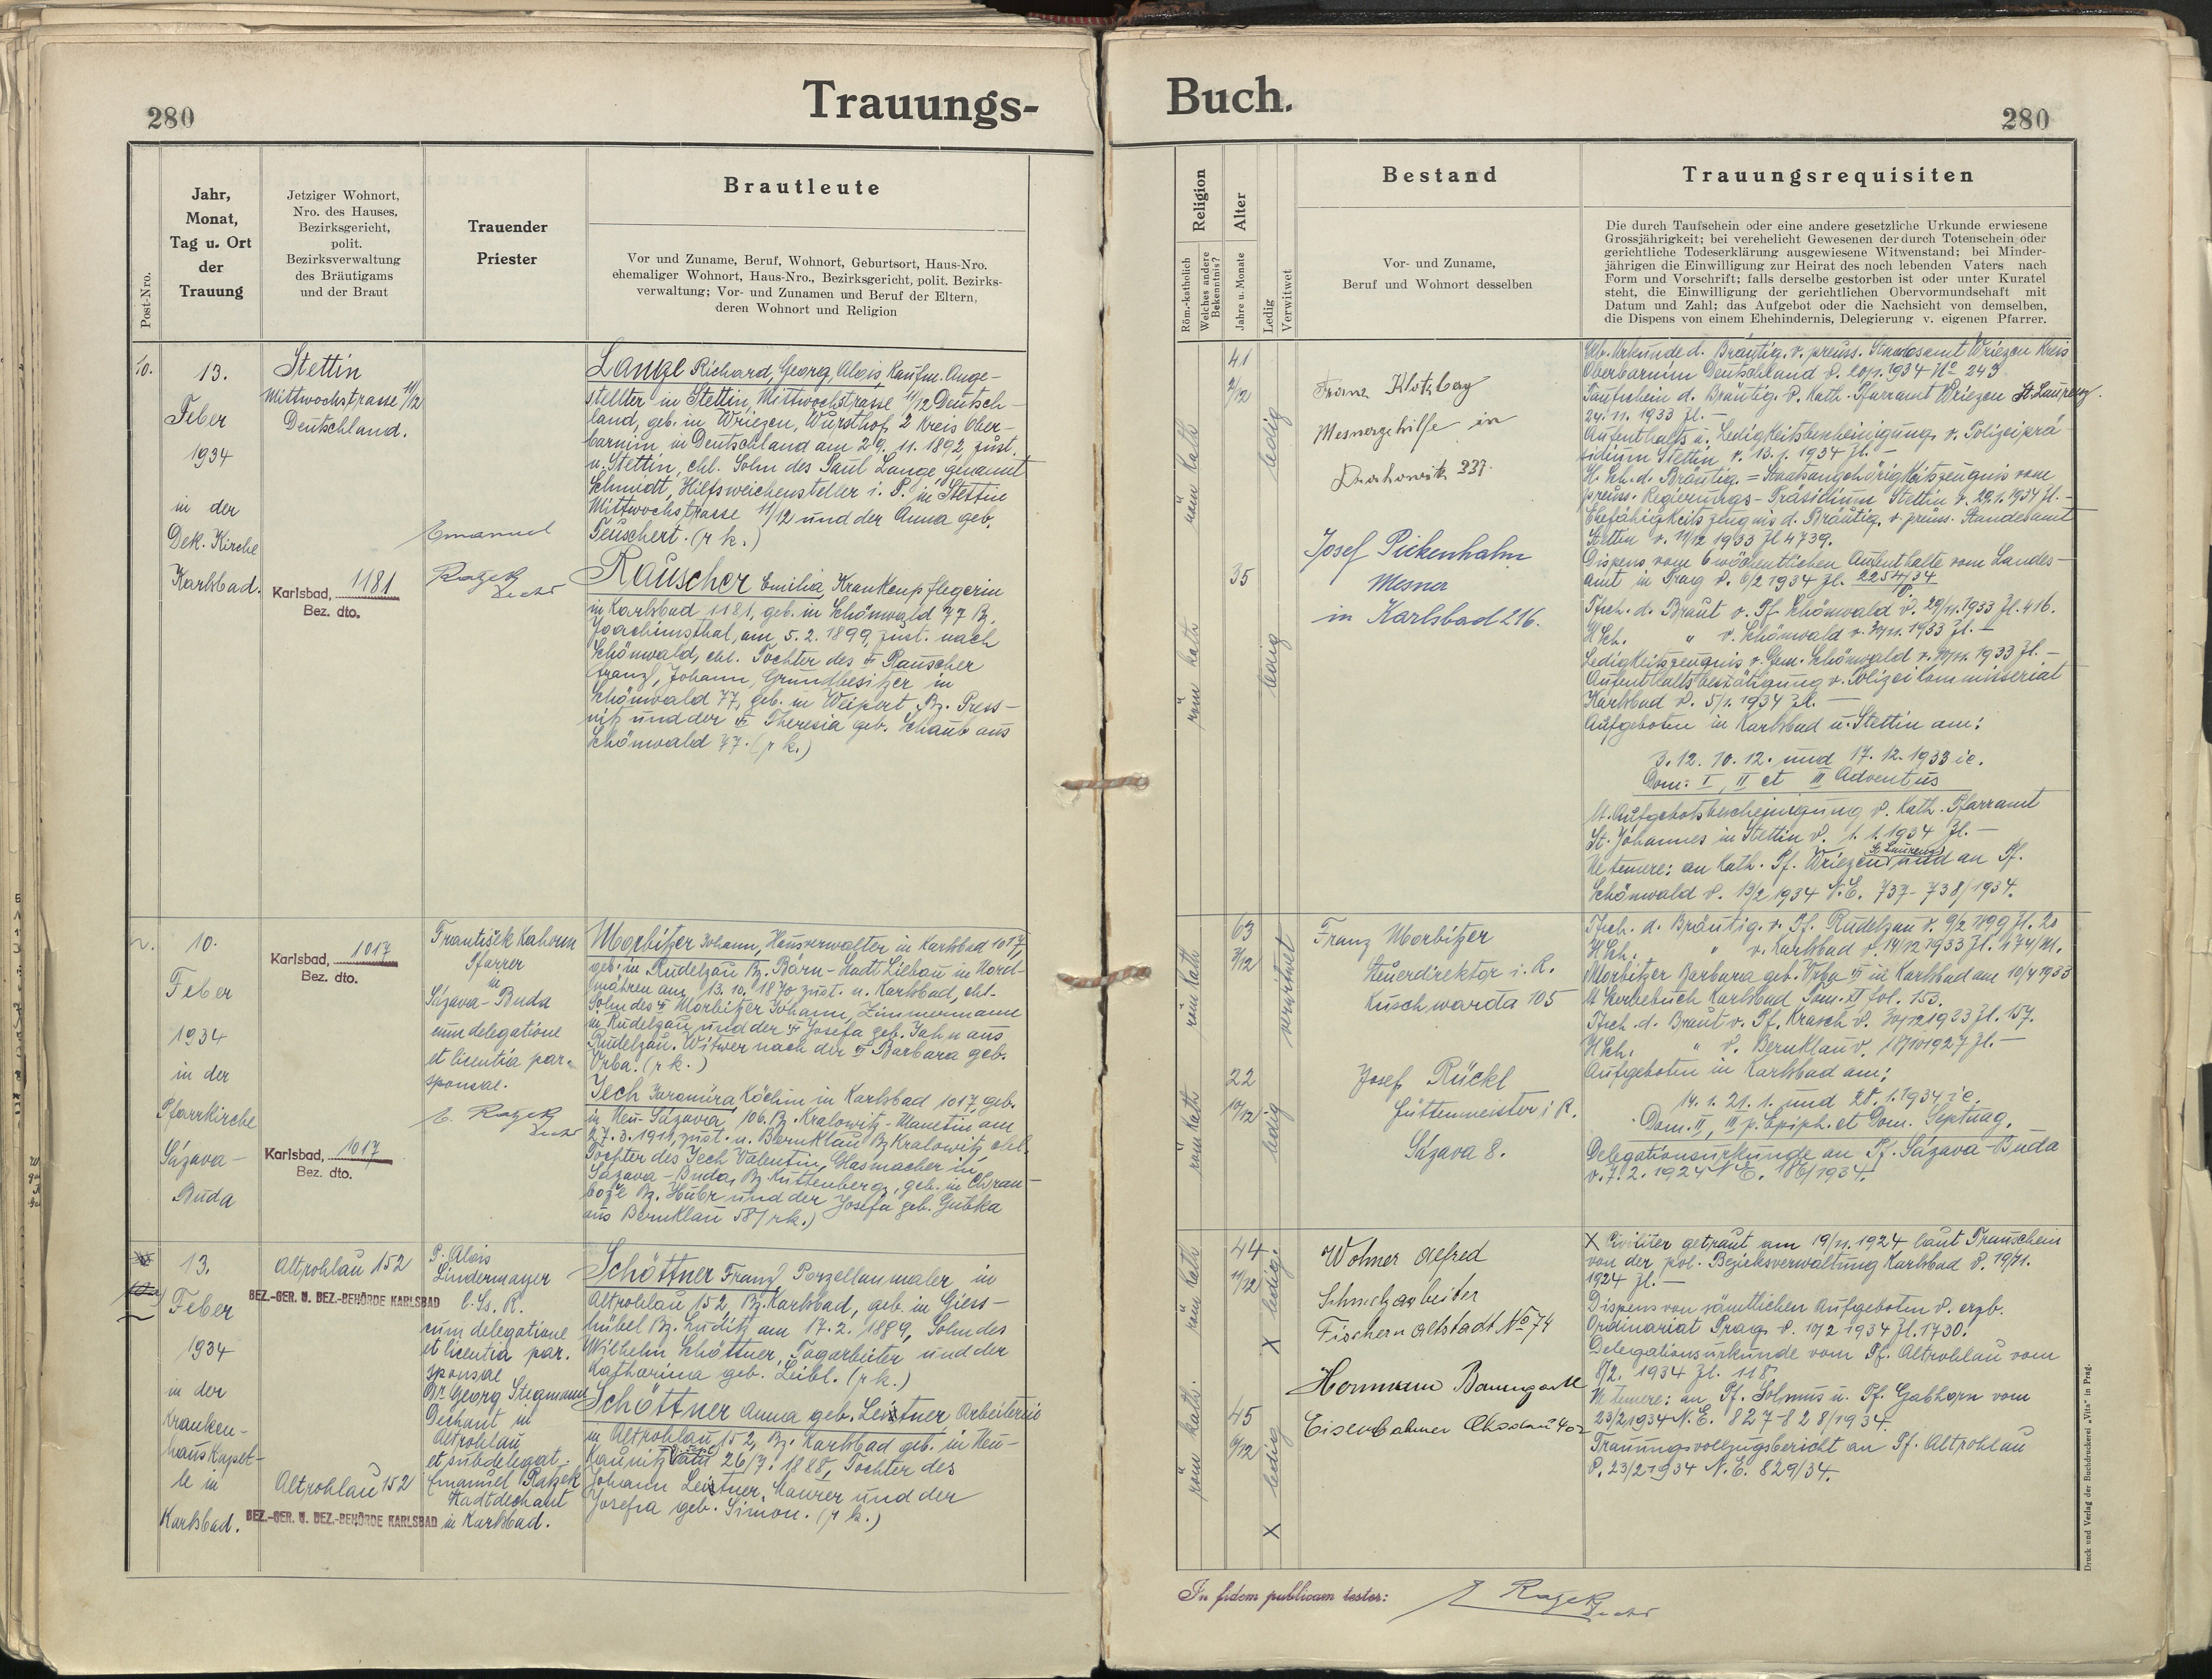 280
Trauungs-
Buch.
280
Post-Nro.
Jahr,
Monat,
Tag u. Ort
der
Trauung
Jetziger Wohnort,
Nro. des Hauses,
Bezirksgericht,
polit.
Bezirksverwaltung
des Bräutigams
und der Braut
Trauender
Priester
Brautleute
Vor und Zuname, Beruf, Wohnort, Geburtsort, Haus-Nro.
ehemaliger Wohnort, Haus-Nro., Bezirksgericht, polit. Bezirks-
verwaltung; Vor- und Zunamen und Beruf der Eltern,
deren Wohnort und Religion
Religion
Röm.-katholisch
Welches andere
Bekenntnis?
Alter
Jahre u. Monate
Ledig
Verwitwet
Bestand
Vor- und Zuname,
Beruf und Wohnort desselben
Trauungsrequisiten
Die durch Taufschein oder eine andere gesetzliche Urkunde erwiesene
Grossjährigkeit; bei verehelicht Gewesenen der durch Totenschein oder
gerichtliche Todeserklärung ausgewiesene Witwenstand; bei Minder-
jährigen die Einwilligung zur Heirat des noch lebenden Vaters nach
Form und Vorschrift; falls derselbe gestorben ist oder unter Kuratel
steht, die Einwilligung der gerichtlichen Obervormundschaft mit
Datum und Zahl; das Aufgebot oder die Nachsicht von demselben,
die Dispens von einem Ehehindernis, Delegierung v. eigenen Pfarrer.
10.
13.
Feber
1934
in der
Dek. Kirche
Karlsbad.
Stettin
Mittwochstrasse 11/12
Deutschland.
Karlsbad, 1181
Bez. dto.
Emanuel
Ratzek
Langl Richard, Georg, Alois, Kaufm. Ange-
stellter in Stettin, Mittwochstrasse 11/12 Deutsch-
land, geb. in Wriezen, Wursthof 2 Kreis Ober-
barnim in Deutschland am 29. 11. 1892, zust.
n. Stettin, ehl. Sohn des Paul Lange, genannt
Schmidt, Hilfsweichensteller i. P. in Stettin
Mittwochstrasse 11/12 und der Anna geb.
Teuschert. (r k.)
Rauscher Emilia, Krankenpflegerin
in Karlsbad 1181, geb. in Schönwald 77 Bz.
Joachimsthal, am 5. 2. 1899, zust. nach
Schönwald, ehl. Tochter des Rauscher
Franz, Johann, Grundbesitzer in
Schönwald 77, geb. in Weipert, Bz. Press-
nitz und der Theresia geb. Schaub aus
Schönwald 77. (r k.)
röm kath
41
2/12
ledig
röm kath
35
ledig
Franz Klotzberg
Mesnergehilfe in
337.
Josef Pickenhahn
Mesner
in Karlsbad 216.
Geb. Urkunde d. Bräutig. v. preuss. Standesamt Wriezen Kreis
Oberbarnim Deutschland 1934 No 243
Taufschein d. Bräutig. v. Kath. Pfarramt Wriezen
24. 11. 1933 Zl. -
Aufenthalts u. Ledigkeitsbescheinigung v. Polizeiprä-
sidium Stettin v. 13. 1. 1934 Zl. -
H Sch. d. Bräutig. = Staatsangehörigkeitszeugnis vom
preuss. Regierungs-Präsidium Stettin v. 29. 1. 1934 Zl. -
Ehefähigkeitszeugnis d. Bräutig. v. preuss. Standesamt
Stettin v. 11/12 1933 Zl 4739.
Dispens vom 6 wöchentlichen Aufenthalte vom Landes-
amt in Prag v. 6/2 1934 Zl. 2254/34
Tsch. d. Braut v. Pf. Schönwald v. 29/11. 1933 Zl. 416.
H Sch. " v. Schönwald v. 1933 Zl. -
Ledigkeitszeugnis v. Gem. Schönwald v. 1933 Zl. -
Aufenthaltsbestätigung v. Polizeikommissariat
Karlsbad v. 5/1. 1934 Zl. -
Aufgeboten in Karlsbad u. Stettin am:
3. 12. 10. 12. und 17. 12. 1933 ie.
Dom: I, II et III Adventus
lt. Aufgebotsbescheinigung v. Kath. Pfarramt
St. Johannes in Stettin v. 1. 1. 1934 Zl. -
Ne temere: an Kath. Pf. Wriezen und an Pf.
Schönwald v. 13/2 1934 N. E. 737-738/1934.
10.
Feber
1934
in der
Pfarrkirche
Sázava-
Buda
Karlsbad, 1017
Bez. dto.
Karlsbad, 1017
Bez. dto.
František Kahoun
Pfarrer
in
Sázava-Buda
cum delegatione
et licentia par.
sponsae.
E. Ratzek
Morbitzer Johann, Hausverwalter in Karlsbad 1017,
geb. in Rudelzau Bz. Bärn-Stadt Liebau in Nord-
mähren am 13. 10. 1870 zust. n. Karlsbad, ehl.
Sohn des Morbitzer Johann, Zimmermann
in Rudelzau und der Josefa geb. Jahn aus
Rudelzau. Witwer nach der Barbara geb.
Vrba. (r k.)
Jech Jaromíra Köchin in Karlsbad 1017, geb.
in Neu-Sázava 106, Bz. Kralowitz-Manetin am
27. 3. 1911, zust. n. Bernklau Bz Kralowitz ehl.
Tochter des Jech Valentin, Glasmacher in
Sázava-Buda, Bz. Kuttenberg, geb. in Chrau-
Bz. und der Josefa geb. Gubka
aus Bernklau 58 (rk.)
röm kath
63
3/12
verwitwet
röm kath
22
10/12
ledig
Franz Morbitzer
Steuerdirektor i. R.
Kuschwarda 105
Josef Rückl
Hüttenmeister i R.
Sázava 8.
Tsch. d. Bräutig. v. Pf. Rudelzau v. 9/2 1899 Zl. 20
H Sch. " v. Karlsbad v. 14/12 1933 Zl. 474/
Morbitzer Barbara geb. Vrba in Karlsbad am 10/4 1933
lt Sterbebuch Karlsbad Tom. XI fol. 153.
Tsch. d. Braut v. Pf. Krasch v. 1933 Zl. 157.
H Sch. " v. Bernklau v. 18/10 1927 Zl. -
Aufgeboten in Karlsbad am:
14. 1. 21. 1. und 28. 1. 1934 ie.
Dom. II, III p. Epiph. et Dom. Septuag.
Delegationsurkunde an Pf. Sázava-Buda
v. 7. 2. 1924 N E. 186/1934.
13.
Feber
1934
in der
Kranken-
hauskapel-
le in
Karlsbad.
Altrohlau 152
BEZ.-GER. U. BEZ.-BEHÖRDE KARLSBAD
Altrohlau 152
BEZ.-GER. U. BEZ.-BEHÖRDE KARLSBAD
P. Alois
Lindermayer
C. Ss. R.
cum delegatione
et licentia par.
sponsae
Dr. Georg Stegmann
Dechant in
Altrohlau
et subdelegat.
Emanuel Ratzek
Stadtdechant
in Karlsbad.
Schöttner Franz, Porzellanmaler in
Altrohlau 152, Bz. Karlsbad, geb. in Giess-
hübel Bz. Luditz am 17. 2. 1889, Sohn des
Wilhelm Schöttner, Tagarbeiter und der
Katharina geb. Leibl. (r k.)
Schöttner Anna geb. Leistner Arbeiterin
in Altrohlau 152, Bz. Karlsbad geb. in Neu-
Kaunitz 26/7. 1888, Tochter des
Johann Leistner, Maurer und der
Josefa geb. Simon. (r k.)
röm kath
44
11/12
X ledig.
röm kath.
45
6/12
X ledig
Wohner Alfred
Schmelzarbeiter
Fischern Altstadt No 74
Hermann Baumgartl
Eisenbahner
X Civiliter getraut am 19/11. 1924 laut Trauschein
von der pol. Bezirksverwaltung Karlsbad v. 19/11.
1924 Zl. -
Dispens von sämtlichen Aufgeboten v. erzb.
Ordinariat Prag v. 10/2 1934 Zl. 1730.
Delegationsurkunde vom Pf. Altrohlau vom
8/2. 1934 Zl. 118.
Ne temere: an Pf. Solmus u. Pf. Gabhorn vom
23/2 1934 N. E. 827-828/1934.
Trauungsvollzugsbericht an Pf. Altrohlau
v. 23/2 1934 N. E. 829/34.
In fidem publicam testor:
E Ratzek
Druck und Verlag der Buchdruckerei „Vita" in Prag.